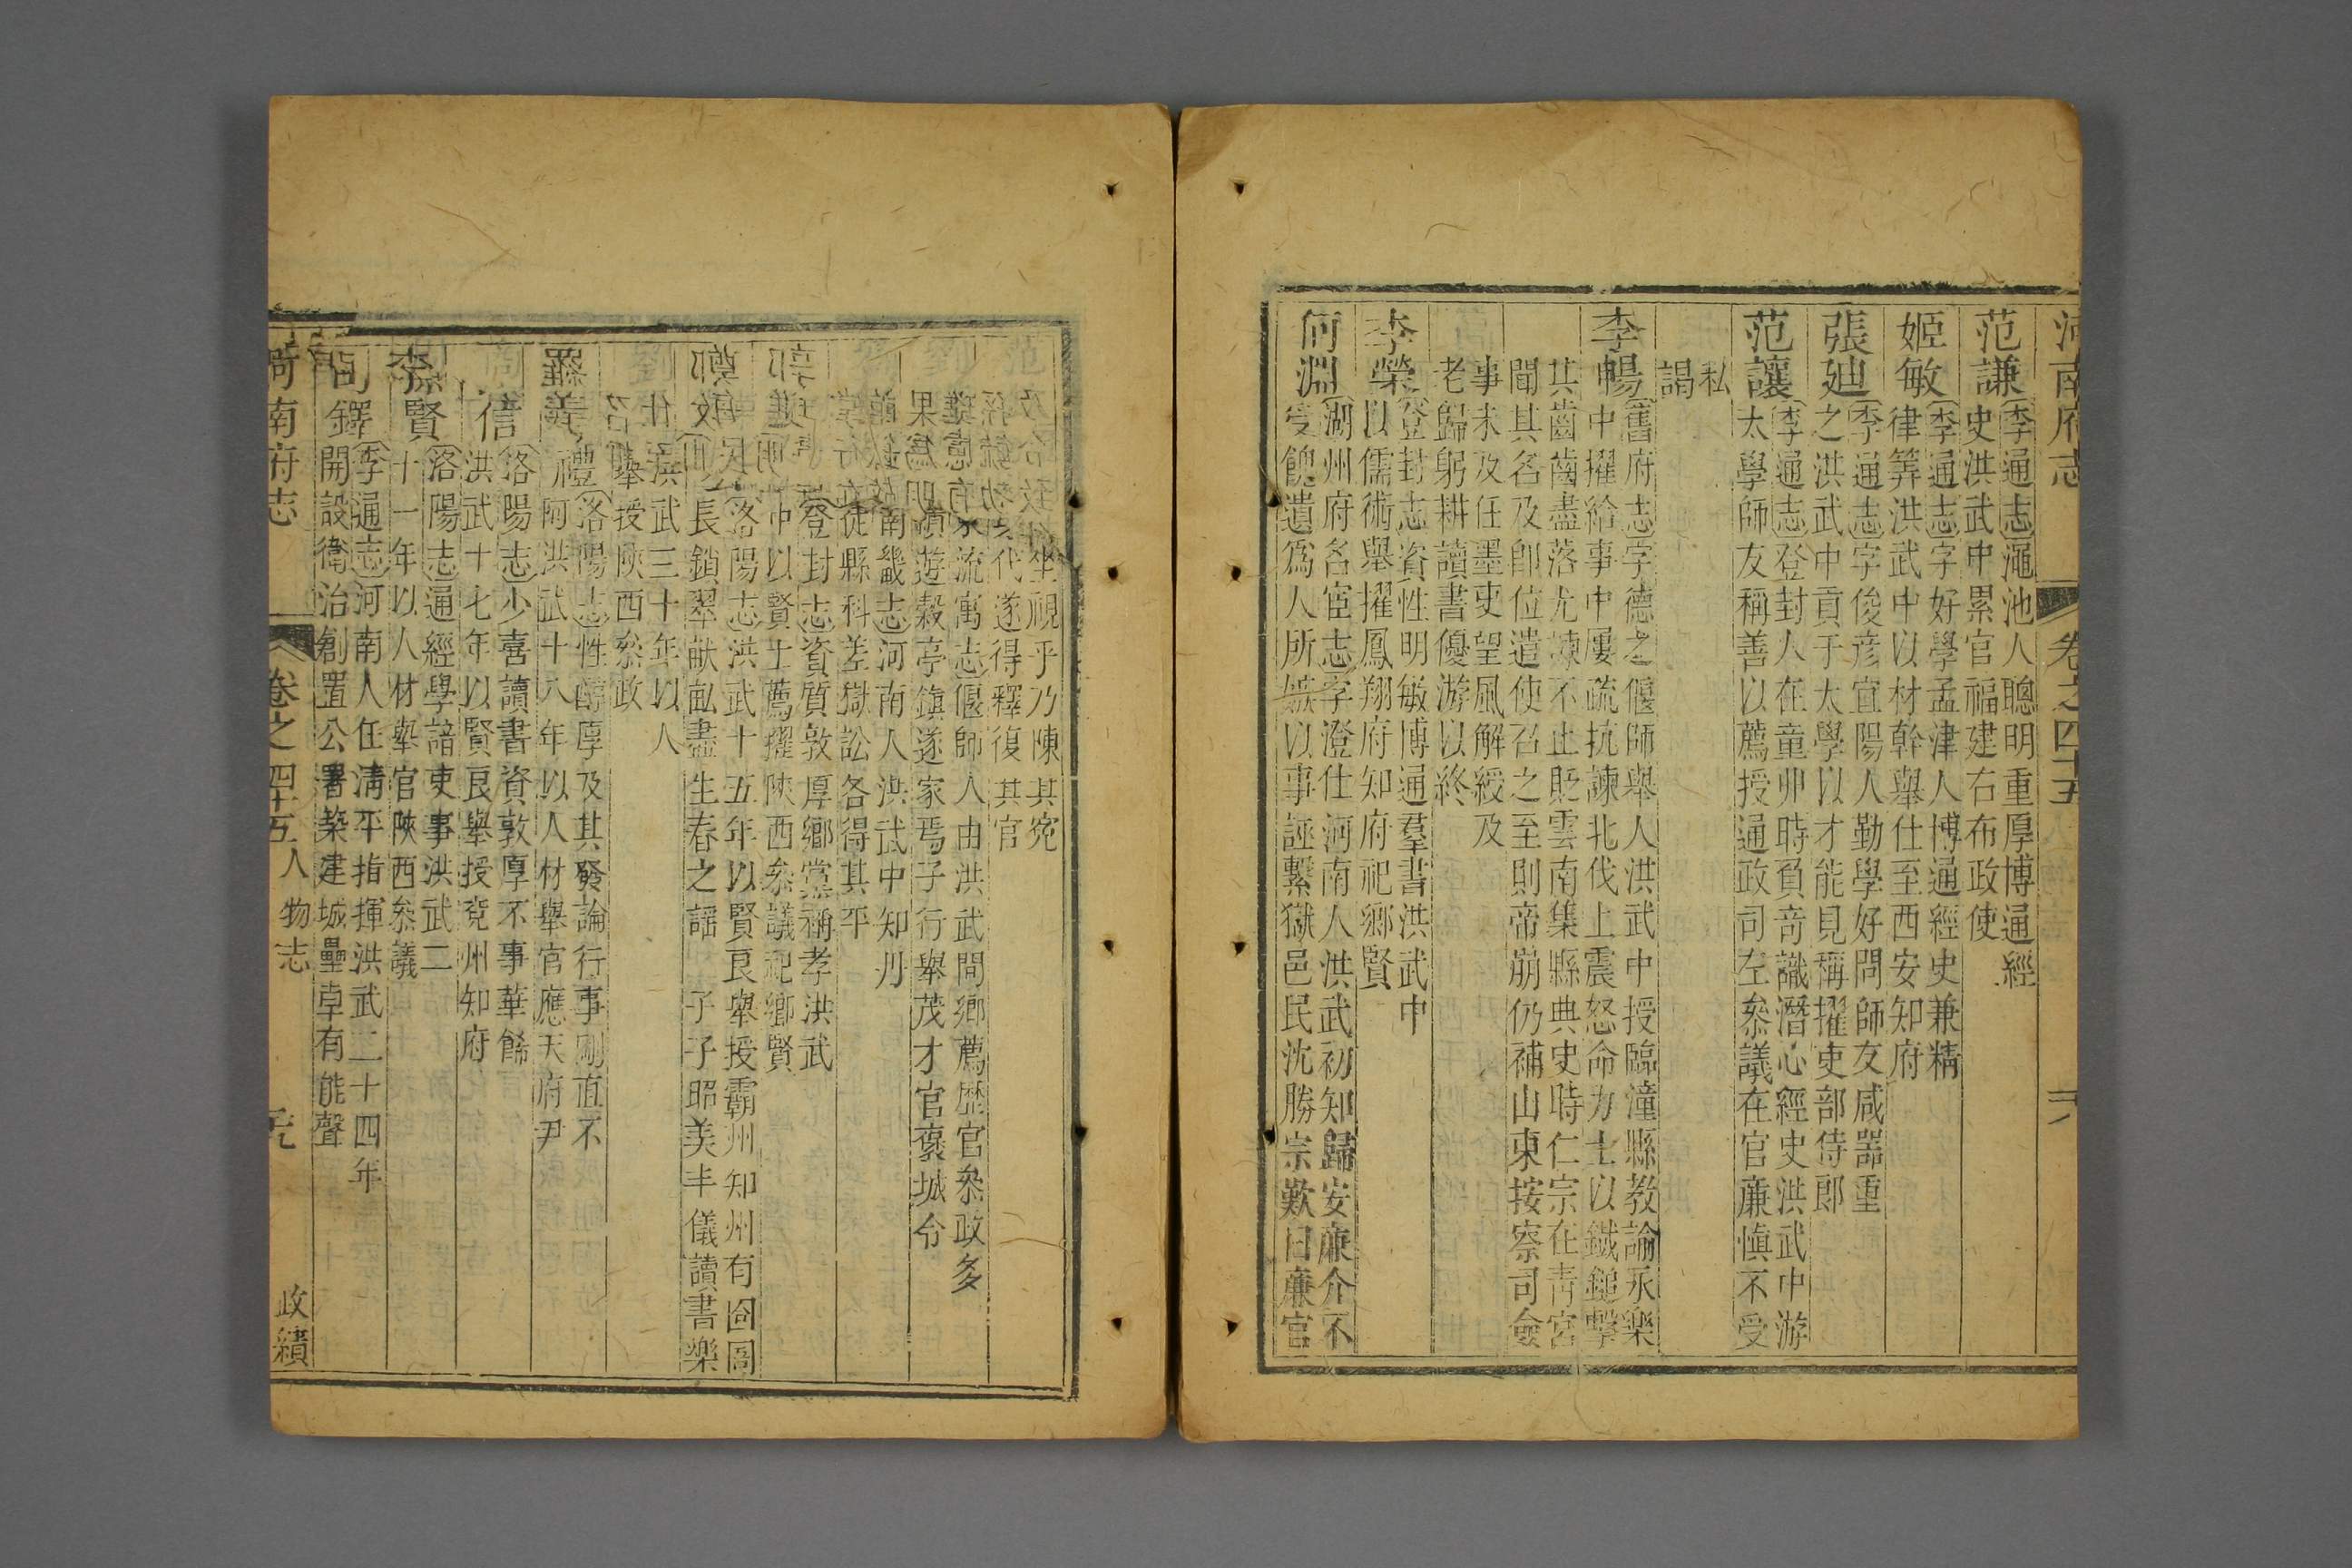 河南府志
卷之四十五
范謙
李通志澠池人聰明重厚博通經
史洪武中累官福建右布政使
姬敏
李通志字好學孟津人博通經史兼精
律筭洪武中以材幹舉仕至西安知府
張廸
李通志字俊彦宜陽人勤學好問師友咸器重
之洪武中貢于太學以才能見稱擢吏部侍郎
范讓
李通志登封人在童丱時負竒識潛心經史洪武中游
太學師友稱善以薦授通政司左叅議在官亷愼不受
私
謁
李暢
舊府志字德之偃師舉人洪武中授臨潼縣教諭永樂
中擢給事中屢疏抗諫北伐上震怒命力士以鐵鎚擊
其齒齒盡落尤諫不止貶雲南集縣典史時仁宗在青宮
聞其名及卽位遣使召之至則帝崩仍補山東按察司僉
事未及任墨吏望風解綬及
老歸躬耕讀書優游以終
李榮
登封志資性明敏博通羣書洪武中
以儒術舉擢鳳翔府知府祀鄉賢
何淵
湖州府名宦志字澄仕河南人洪武初知歸安亷介不
受餽遺爲人所嫉以事誣繫獄邑民沈勝宗歎曰亷官
坐視乎乃陳其寃
代遂得釋復其官
流寓志偃師人由洪武間鄉薦歷官叅政多
遊穀亭鎮遂家焉子行舉茂才官襄城令
南畿志河南人洪武中知丹
徒縣科差獄訟各得其平
登封志資質敦厚鄉黨稱孝洪武
中以賢士薦擢陝西叅議祀鄉賢
鄭敏
洛陽志洪武十五年以賢良舉授霸州知州有囹圄
長鎖翠猷畝盡生春之謡 子子昭美丰儀讀書樂
洪武三十年以人
舉授陝西叅政
羅義
洛陽志性醇厚及其發論行事剛直不
阿洪武十八年以人材舉官應天府尹
信
洛陽志少喜讀書資敦厚不事華餙
洪武十七年以賢良舉授兗州知府
李賢
洛陽志通經學諳吏事洪武二
十一年以人材舉官陝西叅議
李通志河南人任清平指揮洪武二十四年
開設衛治創置公署築建城壘卓有能聲
河南府志
卷之四十五
人物志
政績